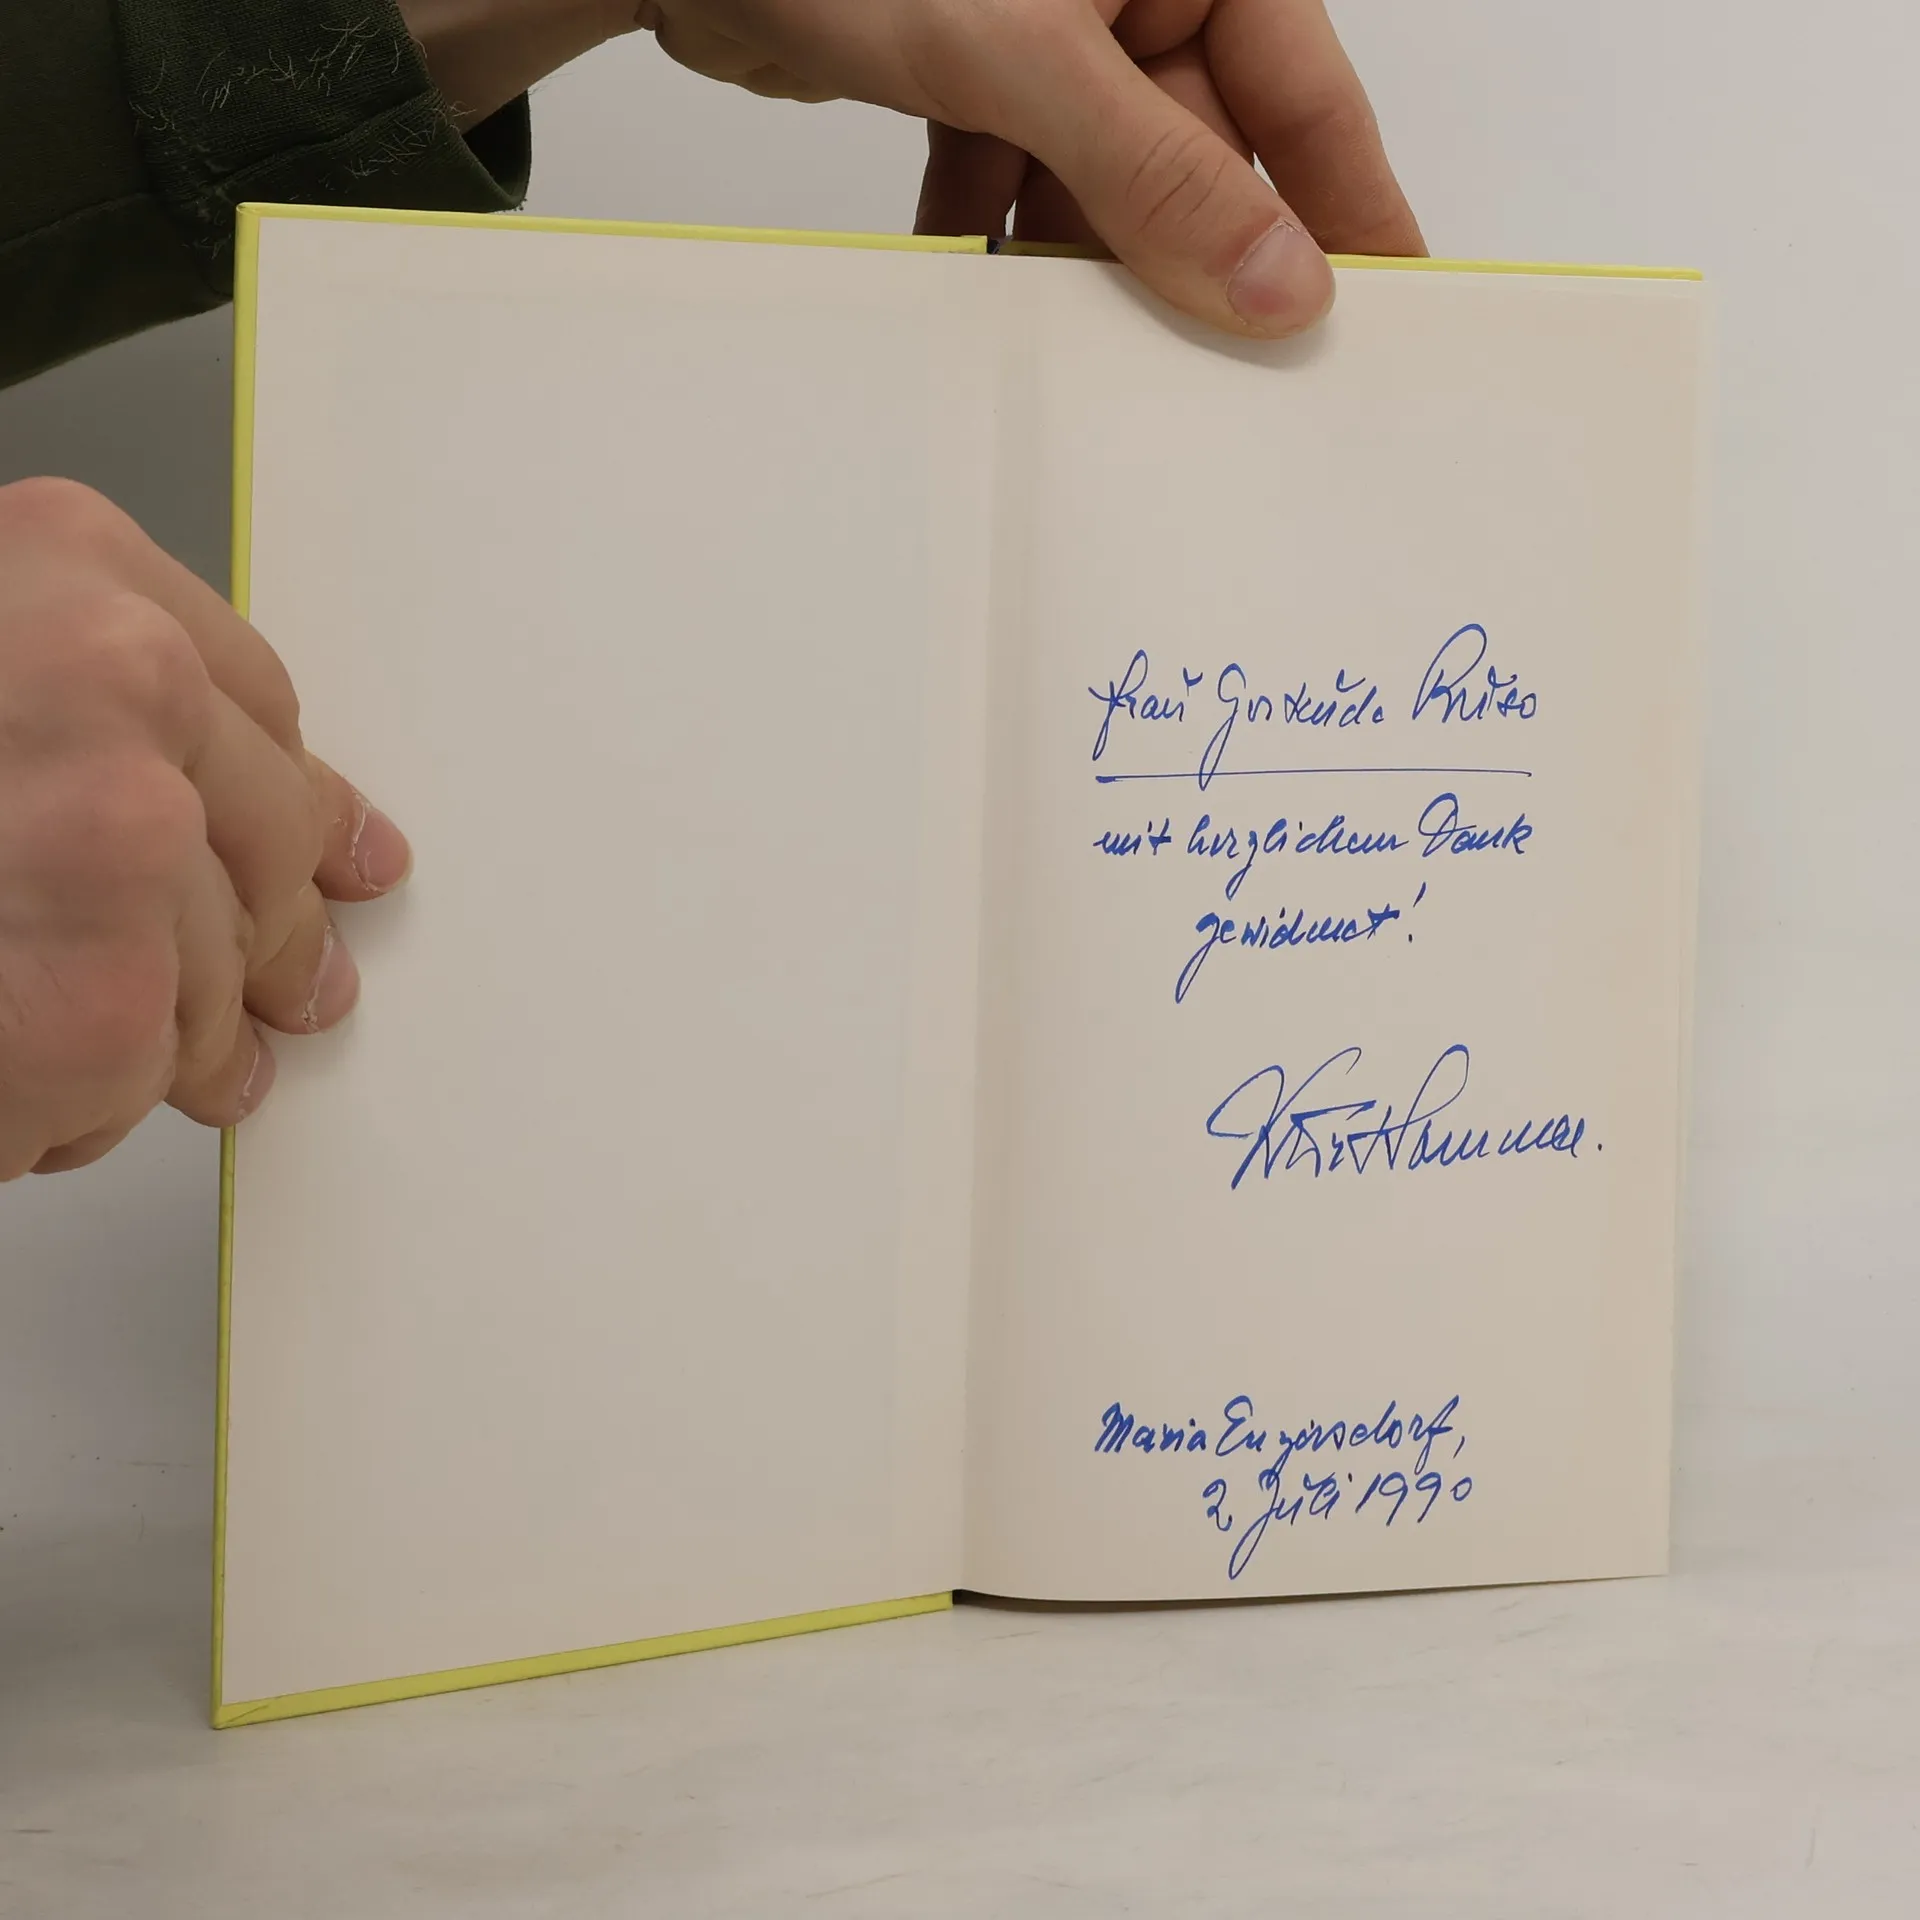 Frau Gertrude Ruso
mit herzlichem Dank
gewidmet!
Kurt Hommer.
Maria Enzersdorf,
2. Juli 1990